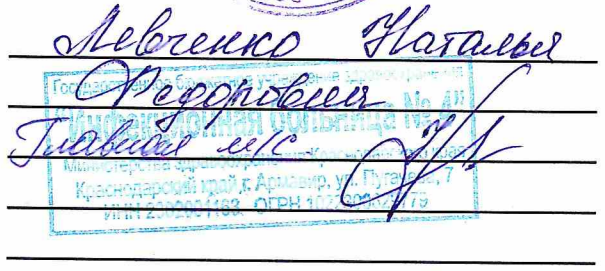 Левченко Наталья
Федоровна
Главная м/с
Государственное бюджетное учреждение здравоохранения
"Инфекционная больница № 4"
Министерства здравоохранения Краснодарского края
Краснодарский край, г. Армавир, ул. Пугачева, 7
ИНН ОГРН